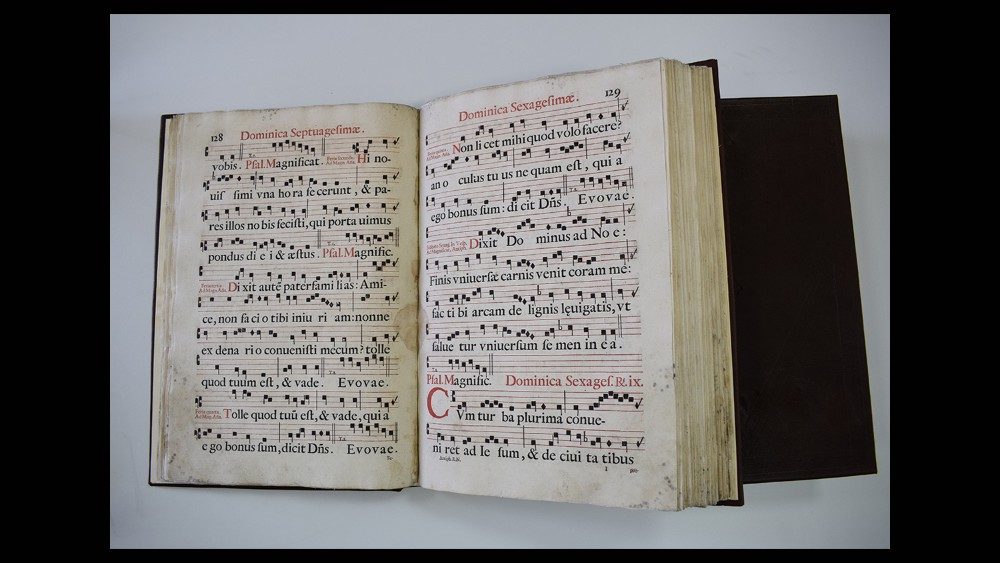 128
Dominica Septuagesimæ.
vobis. Psal. Magnificat. Hi no-
uis simi vna ho ra fe cerunt, & pa-
res illos no bis fecisti, qui porta uimus
pondus di e i & æstus. Psal. Magnific.
Di xit autē paterfami li as: Ami-
ce, non fa ci o tibi iniu ri am: nonne
ex dena ri o conuenisti mecum? tolle
quod tuum est, & vade. Evovae.
Tolle quod tuū est, & vade, qui a
e go bonus sum, dicit Dñs. Evovae.
129
Dominica Sexagesimæ.
Non li cet mihi quod volo facere?
an o culus tu us ne quam est, qui a
ego bonus sum: di cit Dñs. Evovae.
Dixit Do minus ad No e:
Finis vniuersæ carnis venit coram me:
fac ti bi arcam de lignis leuigatis, vt
salue tur vniuersum se men in e a.
Psal. Magnific. Dominica Sexages. R. ix.
CVm tur ba plurima conue-
ni ret ad Ie sum, & de ciui ta tibus